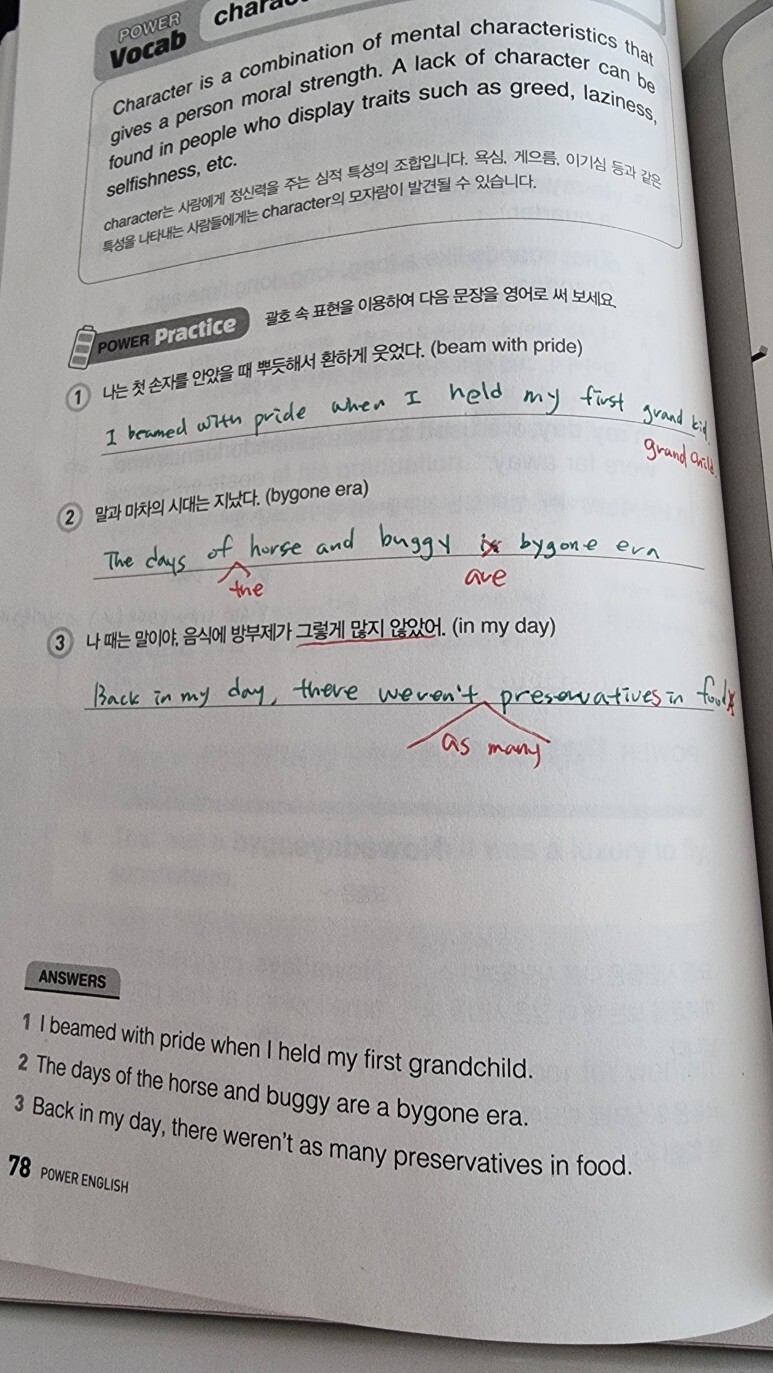 POWER
Vocab
Character is a combination of mental characteristics that
gives a person moral strength. A lack of character can be
found in people who display traits such as greed, laziness,
selfishness, etc.
character는 사람에게 정신력을 주는 심적 특성의 조합입니다. 욕심, 게으름, 이기심 등과 같은
특성을 나타내는 사람들에게는 character의 모자람이 발견될 수 있습니다.
POWER Practice 괄호 속 표현을 이용하여 다음 문장을 영어로 써 보세요.
1 나는 첫 손자를 안았을 때 뿌듯해서 환하게 웃었다. (beam with pride)
I beamed with pride when I held my first grand kid.
grand child.
2 말과 마차의 시대는 지났다. (bygone era)
The days of horse and buggy is bygone era
the are
3 나 때는 말이야, 음식에 방부제가 그렇게 많지 않았어. (in my day)
Back in my day, there weren't preservatives in foods
as many
ANSWERS
1 I beamed with pride when I held my first grandchild.
2 The days of the horse and buggy are a bygone era.
3 Back in my day, there weren't as many preservatives in food.
78 POWER ENGLISH